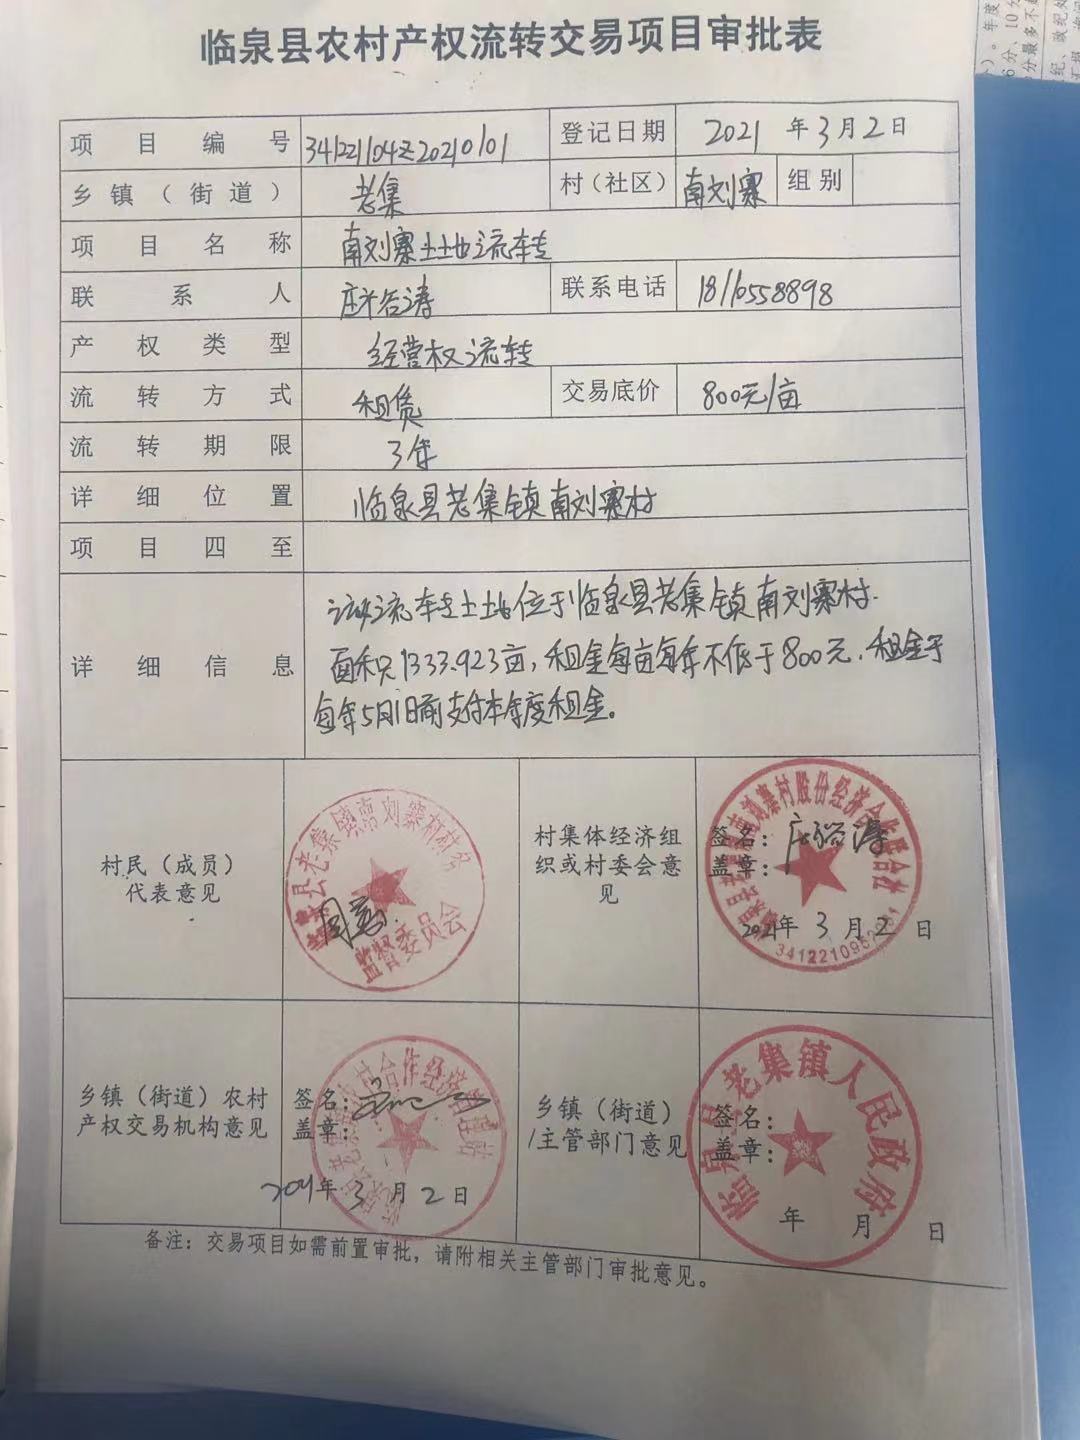 临泉县农村产权流转交易项目审批表
项目编号 341221104Z20210101 登记日期 2021年3月2日
乡镇（街道） 老集 村（社区） 南刘寨 组别
项目名称 南刘寨土地流转
联系人 涛 联系电话 18110558898
产权类型 经营权流转
流转方式 租赁 交易底价 800元/亩
流转期限 3年
详细位置 临泉县老集镇南刘寨村
项目四至
详细信息
该流转土地位于临泉县老集镇南刘寨村.
面积1333.923亩，租金每亩每年不低于800元.租金于
每年5月1日前支付本年度租金。
村民（成员）
代表意见
临泉县老集镇南刘寨村村务
监督委员会
村集体经济组
织或村委会意
见
签名：
盖章：
2021年3月2日
南刘寨村股份经济合作联合社
乡镇（街道）农村
产权交易机构意见
签名：
盖章：
2021年3月2日
乡镇（街道）
/主管部门意见
签名：
盖章：
年 月 日
临泉县老集镇人民政府
备注：交易项目如需前置审批，请附相关主管部门审批意见。